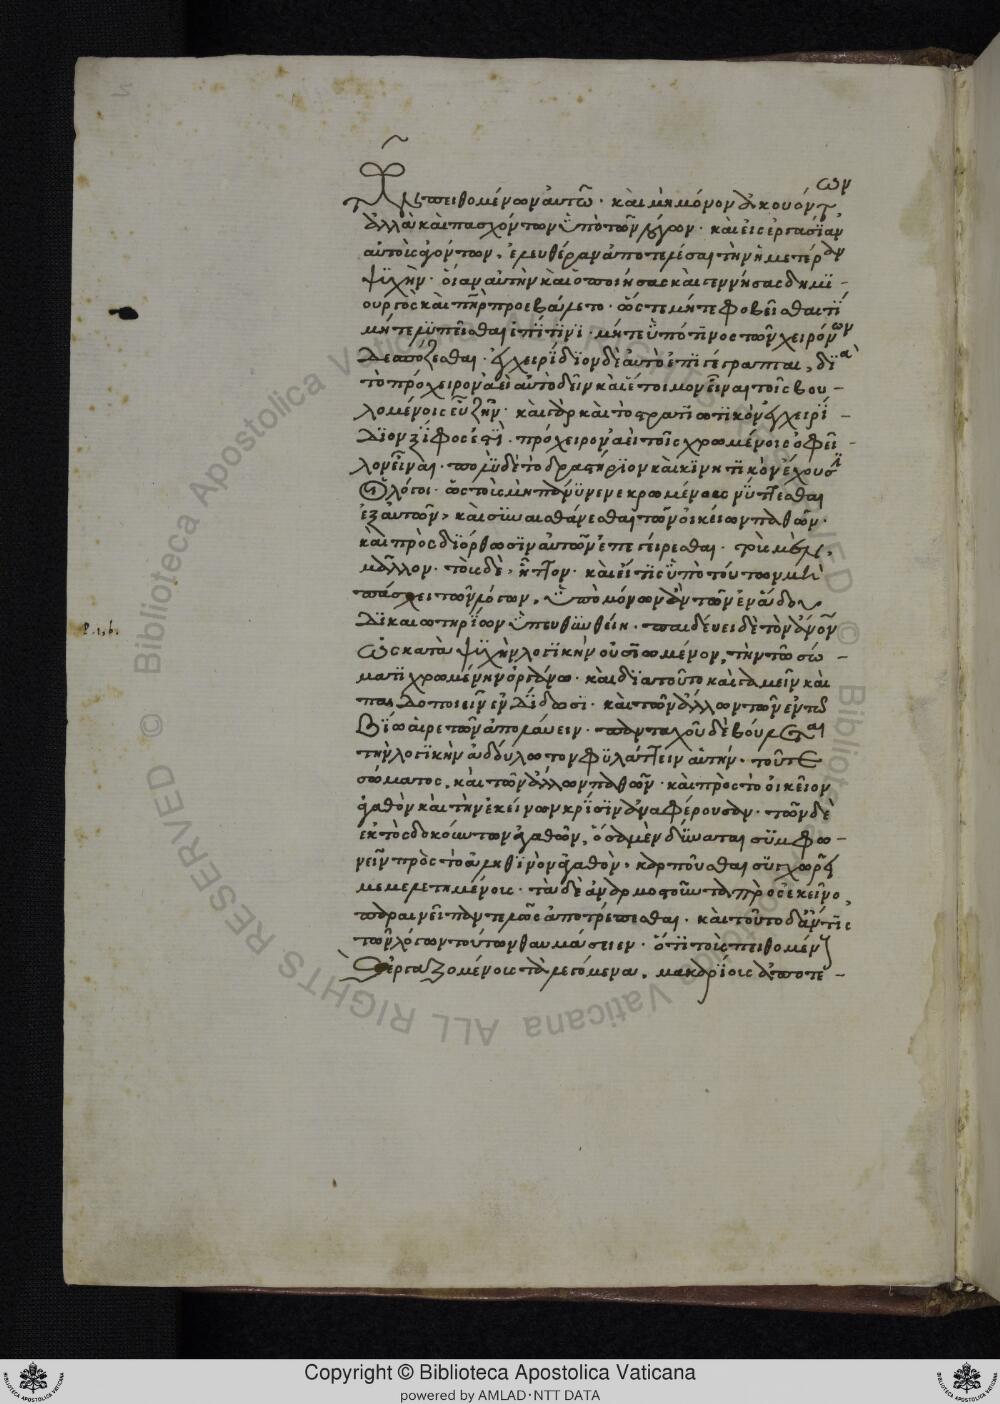 τῆς πειθομένων αὐτῶ· καὶ μὴ μόνον ἀκουόντων
ἀλλὰ καὶ πασχόντων ὑπὸ τῶν λόγων· καὶ εἰς ἐργασίαν
αὐτοῖς ἀγόντων. ἐλευθέραν ἀποτελέσαι τὴν ἡμετέραν
ψυχὴν· οἵαν αὐτὴν καὶ ὁ ποιήσας καὶ γεννήσας δημι-
ουργὸς καὶ πηρ προεβάλετο· ὥς τε μήτε φοβεῖσθαί τι
μήτε λυπεῖσθαι ἐπί τινι· μήτε ὑπό τινος τῶν χειρόνων
δεσπόζεσθαι· ἐγχειρίδιον δὲ αὐτὸ ἐπιγέγραπται, διὰ
τὸ πρόχειρον ἀεὶ αὐτὸ δεῖν καὶ ἕτοιμον εἶναι τοῖς βου-
λομένοις εὖ ζῆν· καὶ γὰρ καὶ τὸ στρατιωτικὸν ἐγχειρί-
διον ξίφος ἐστὶ. πρόχειρον ἀεὶ τοῖς χρωμένοις ὀφεῖ-
λον εἶναι· πολὺ δὲ τὸ δραστήριον καὶ κινητικὸν ἔχουσιν
οἱ λόγοι· ὥς τοῖς μὴ πάνυ νενεκρωμένους νύττεσθαι
ἐξ αὐτῶν, καὶ συναισθάνεσθαι τῶν οἰκείων παθῶν.
καὶ πρὸς διόρθωσιν αὐτῶν ἐπεγείρεσθαι· τοὺς μὲν,
μᾶλλον· τοὺς δὲ, ἧττον· καὶ εἴ τις ὑπὸ τούτων μὴ
πάσχει τῶν λόγων, ὑπὸ μόνων ἂν τῶν ἐν ἅδου
δικαιωτηρίων ὑπευθυνθείη· παιδεύει δὲ τὸν ἄνον
ὡς κατὰ ψυχὴν λογικὴν οὐσιωμένον, τὴν τῶ σώ-
ματι χρωμένην ὀργάνω· καὶ διὰ τοῦτο καὶ γαμεῖν καὶ
παιδοποιεῖν ἐνδίδωσι· καὶ τῶν ἄλλων τῶν ἐν τῶ
βίω αἱρετῶν ἀπολαύειν· πανταχοῦ δὲ βούλεται
τὴν λογικὴν ἀδούλωτον φυλάττειν αὐτήν· τοῦ τε
σώματος, καὶ τῶν ἄλλων παθῶν· καὶ πρὸς τὸ οἰκεῖον
ἀγαθὸν καὶ τὴν ἐκείνων κρίσιν ἀναφέρουσαν· τῶν δὲ
ἐκτὸς δοκούντων ἀγαθῶν, ὅσα μὲν δύναται συμφω-
νεῖν πρὸς τὸ ἀληθινὸν ἀγαθὸν, καρποῦσθαι συγχωρεῖ
μεμελετημένοις· τὰ δὲ ἀναρμοστοῦντα πρὸς ἐκεῖνο,
παραινεῖ παντελῶς ἀποτρέπεσθαι. καὶ τοῦτο δ' ἄν τις
τῶν λόγων τούτων θαυμάσειεν· ὅτι τοῖς πειθομένοις
καὶ ἐργαζομένοις τὰ λεγόμενα, μακαρίοις ἀποτε-
Copyright © Biblioteca Apostolica Vaticana
powered by AMLAD·NTT DATA